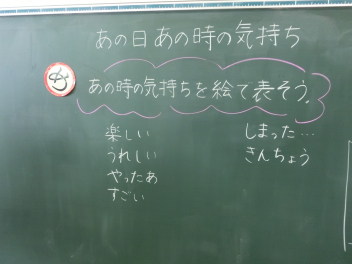 あの日あの時の気持ち
め
あの時の気持ちを絵で表そう。
楽しい
うれしい
やったあ
すごい
しまった…
さんちょう